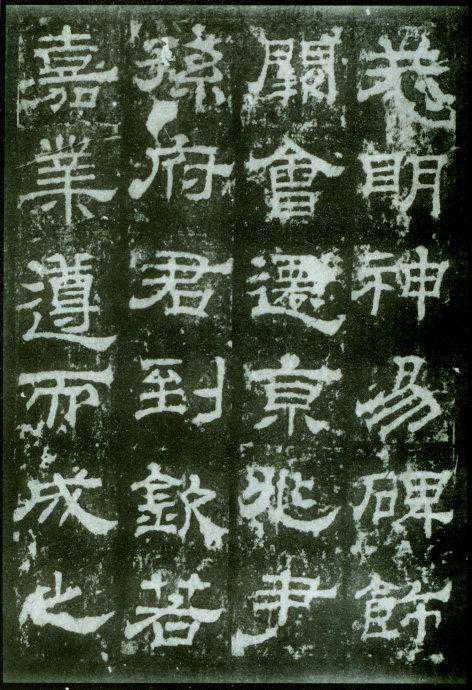 恭明神易碑飾
闕會遷京兆尹
孫府君到欽若
嘉業遵而成之